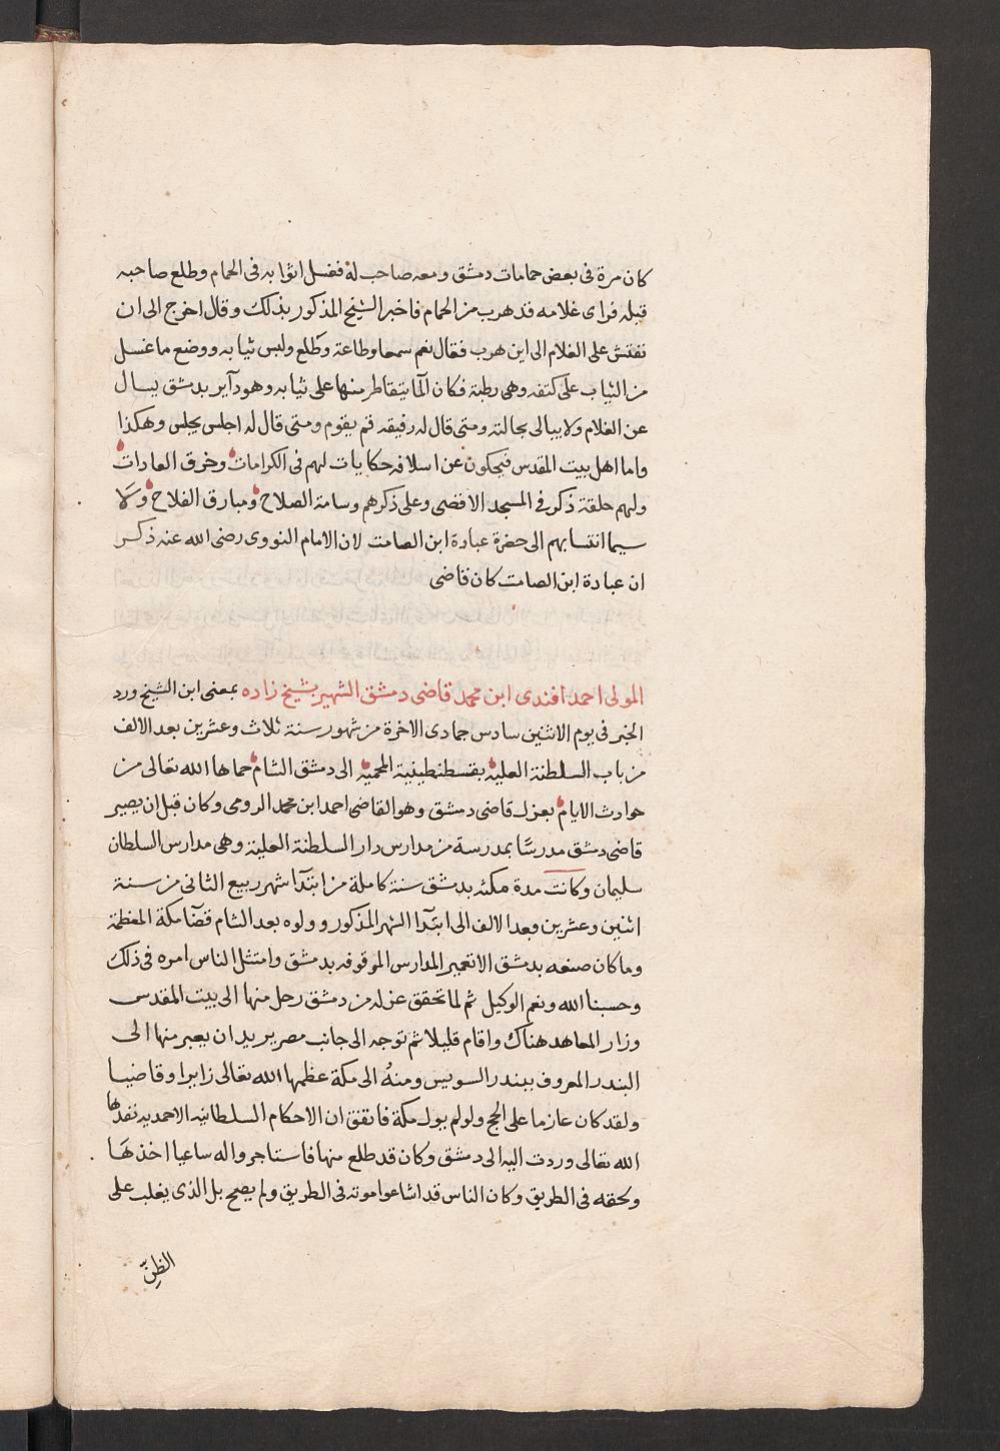 كان مرة فى بعض حمامات دمشق ومعه صاحب له فغسل اثوابه فى الحمام وطلع صاحبه
قبله فراى غلامه قد هرب من الحمام فاخبر الشيخ المذكور بذلك وقال اخرج الى ان
نفتش على الغلام الى اين هرب فقال نعم سمعا وطاعة وطلع ولبس ثيابه ووضع ما غسل
من الثياب على كتفه وهى رطبة فكان الما يتقاطر منها على ثيابه وهو داير بدمشق يسال
عن الغلام ولا يبالى بحالته ومتى قال له رفيقه قم يقوم ومتى قال له اجلس يجلس وهكذا
واما اهل بيت المقدس فيحكون عن اسلافه حكايات لهم فى الكرامات وخرق العادات
ولهم حلقة ذكر فى المسجد الاقصى وعلى ذكرهم وسامة الصلاح ومبارق الفلاح ولا
سيما انتسابهم الى حضرة عبادة ابن الصامت لان الامام النووى رضى الله عنه ذكر
ان عبادة ابن الصامت كان قاضى
المولى احمد افندى ابن محمد قاضى دمشق الشهير بشيخ زاده بمعنى ابن الشيخ ورد
الخبر فى يوم الاثنين سادس جمادى الاخرة من شهور سنة ثلاث وعشرين بعد الالف
من باب السلطنة العلية بقسطنطينية المحمية الى دمشق الشام حماها الله تعالى من
حوادث الايام بعزل قاضى دمشق وهو القاضى احمد ابن محمد الرومى وكان قبل ان يصير
قاضى دمشق مدرسًا بمدرسة من مدارس دار السلطنة العلية وهى مدارس السلطان
سليمان وكانت مدة مكثه بدمشق سنة كاملة من ابتدآ شهر ربيع الثانى من سنة
اثنين وعشرين وبعد الالف الى ابتدآ الشهر المذكور وولوه بعد الشام قضآ مكة المعظمة
وما كان صنعه بدمشق الا تعمير المدارس الموقوفه بدمشق وامتثل الناس امره فى ذلك
وحسبنا الله ونعم الوكيل ثم لما تحقق عزله من دمشق رحل منها الى بيت المقدس
وزار المعاهد هناك واقام قليلا ثم توجه الى جانب مصر يريد ان يعبر منها الى
البندر المعروف ببندر السويس ومنهُ الى مكة عظمها الله تعالى زايرا وقاضيا
ولقد كان عازما على الحج ولو لم يول مكة فاتفق ان الاحكام السلطانيه الاحمديه نفذها
الله تعالى وردت اليه الى دمشق وكان قد طلع منها فاستاجروا له ساعيا اخذها
ولحقه فى الطريق وكان الناس قد اشاعوا موته فى الطريق ولم يصح بل الذى يغلب على
الظن